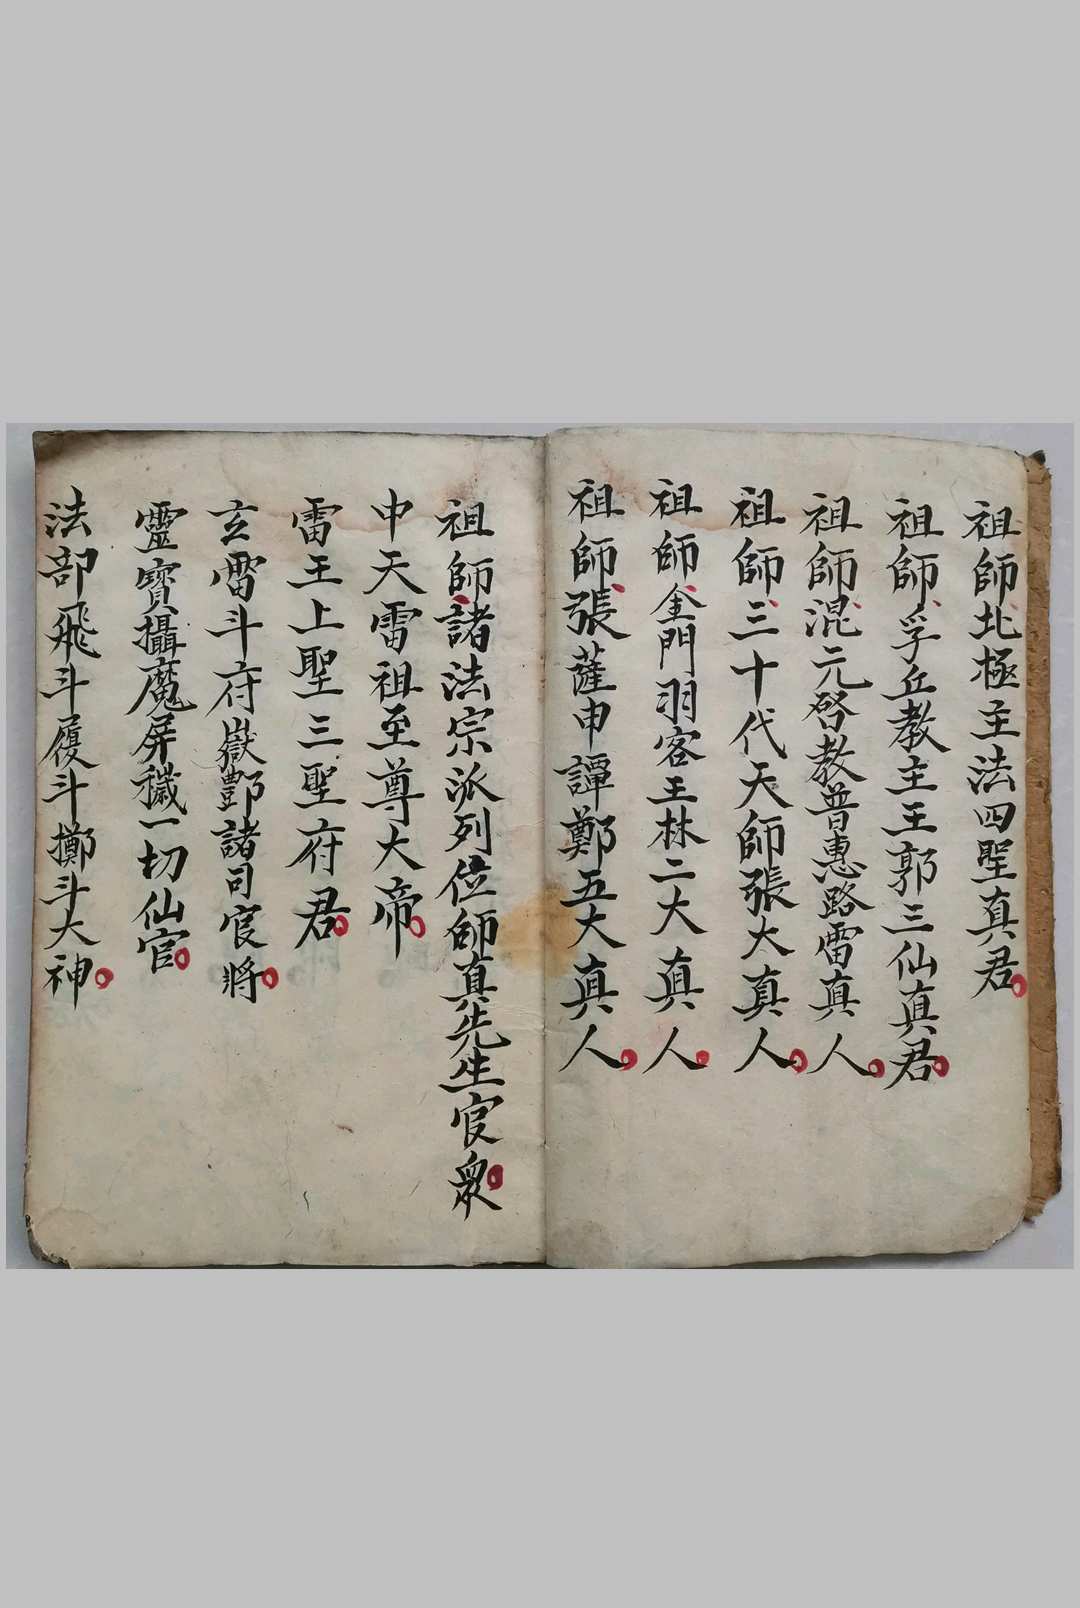 祖師北極主法四聖真君
祖師孚丘教主王郭三仙真君
祖師混元啓教普惠路雷真人
祖師三十代天師張大真人
祖師金門羽客王林二大真人
祖師張薩申譚鄭五大真人
祖師諸法宗派列位師真先生官衆
中天雷祖至尊大帝
雷王上聖三聖府君
玄雷斗府嶽酆諸司官將
靈寶攝魔屏穢一切仙官
法部飛斗履斗擲斗大神